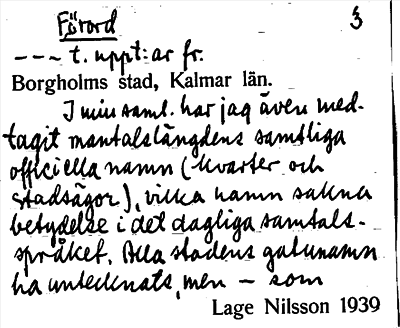 Förord 3
--- t. uppt:ar fr.
Borgholms stad, Kalmar län.
I min saml. har jag även med-
tagit mantalslängdens samtliga
officiella namn (kvarter och
stadsägor), vilka namn sakna
betydelse i det dagliga samtals-
språket. Alla stadens gatunamn
ha antecknats, men – som
Lage Nilsson 1939